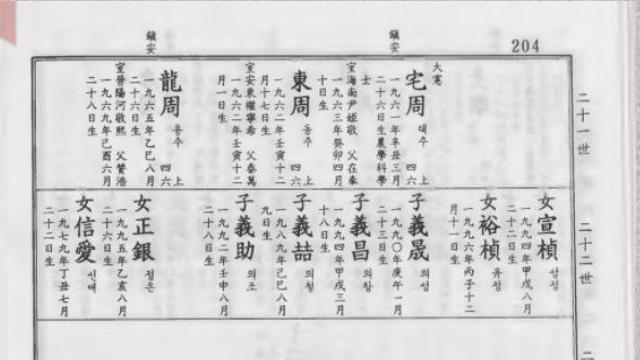 204
鎭安
鎭安
二十一世
大憲
宅周 택주 四六 上
一九六一年辛丑三月
二十六日生農學科學
士
室海南尹姬敬 父在春
一九六三年癸卯四月
十日生
東周 동주 四六 上
一九六二年壬寅十二
月十七日生
室安東權寧希 父泰萬
一九六二年壬寅十二
月一日生
龍周 용주 四六 上
一九六五年乙巳八月
二十六日生
室晉陽河敬熙 父贊浩
一九六九年己酉六月
二十八日生
二十二世
女宣楨 선정
一九九四年甲戌八月
二十二日生
女裕楨 유정
一九九六年丙子十二
月十一日生
子義晟 의성
一九九〇年庚午一月
二十三日生
子義昌 의창
一九九四年甲戌三月
十八日生
子義喆 의철
一九八九年己巳八月
九日生
子義助 의조
一九九二年壬申八月
二十八日生
女正銀 정은
一九九五年乙亥八月
二十六日生
女信愛 신애
一九七九年丁丑七月
二十二日生